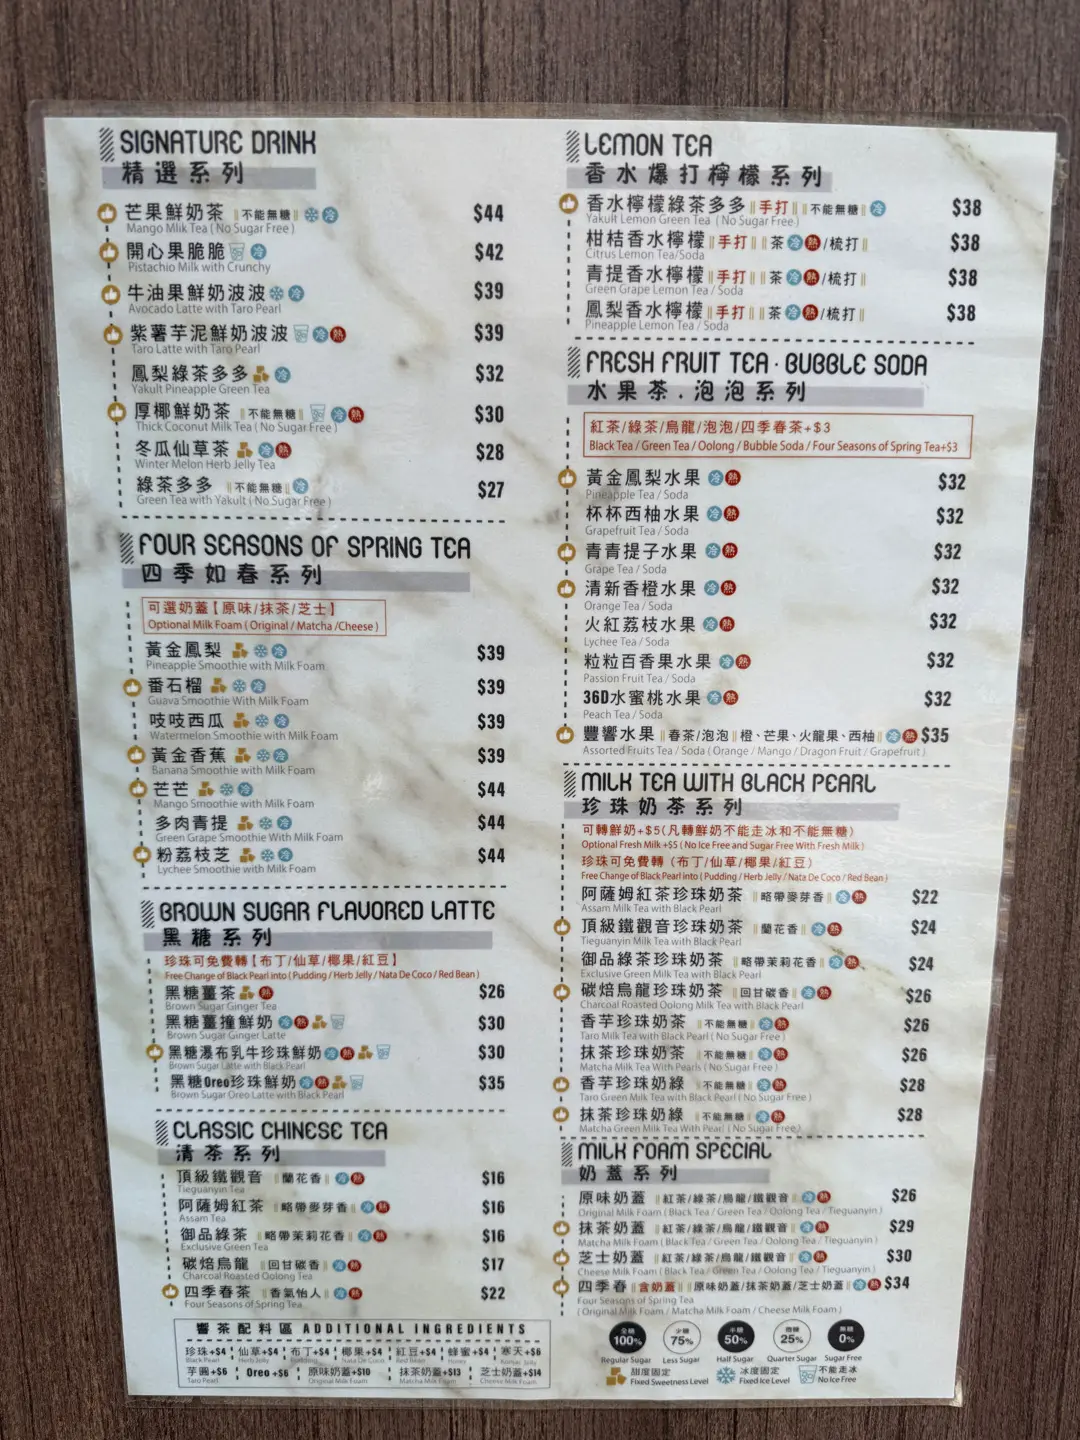 SIGNATURE DRINK
精選系列
芒果鮮奶茶 ‖不能無糖‖ 冷 $44
Mango Mlik Tea ( No Sugar Free )
開心果脆脆 冷 $42
Pistachio Milk with Crunchy
牛油果鮮奶波波 冷 $39
Avocado Latte with Taro Pearl
紫薯芋泥鮮奶波波 冷 熱 $39
Taro Latte with Taro Pearl
鳳梨綠茶多多 冷 $32
Yakult Pineapple Green Tea
厚椰鮮奶茶 ‖不能無糖‖ 冷 熱 $30
Thick Coconut Milk Tea ( No Sugar Free )
冬瓜仙草茶 冷 熱 $28
Winter Melon Herb Jelly Tea
綠茶多多 ‖不能無糖‖ 冷 $27
Green Tea with Yakult ( No Sugar Free )
FOUR SEASONS OF SPRING TEA
四季如春系列
可選奶蓋【原味/抹茶/芝士】
Optional Milk Foam ( Original / Matcha /Cheese )
黃金鳳梨 冷 $39
Pineapple Smoothie with Milk Foam
番石榴 冷 $39
Guava Smoothie With Milk Foam
吱吱西瓜 冷 $39
Watermelon Smoothie with Milk Foam
黃金香蕉 冷 $39
Banana Smoothie with Milk Foam
芒芒 冷 $44
Mango Smoothie with Milk Foam
多肉青提 冷 $44
Green Grape Smoothie With Milk Foam
粉荔枝芝 冷 $44
Lychee Smoothie with Milk Foam
BROWN SUGAR FLAVORED LATTE
黑糖系列
珍珠可免費轉【布丁/仙草/椰果/紅豆】
Free Change of Black Pearl into ( Pudding / Herb Jelly / Nata De Coco / Red Bean )
黑糖薑茶 熱 $26
Brown Sugar Ginger Tea
黑糖薑撞鮮奶 冷 熱 $30
Brown Sugar Ginger Latte
黑糖瀑布乳牛珍珠鮮奶 冷 熱 $30
Brown Sugar Latte with Black Pearl
黑糖Oreo珍珠鮮奶 冷 熱 $35
Brown Sugar Oreo Latte with Black Pearl
CLASSIC CHINESE TEA
清茶系列
頂級鐵觀音 ‖蘭花香‖ 冷 熱 $16
Tieguanyin Tea
阿薩姆紅茶 ‖略帶麥芽香‖ 冷 熱 $16
Assam Tea
御品綠茶 ‖略帶茉莉花香‖ 冷 熱 $16
Exclusive Green Tea
碳焙烏龍 ‖回甘碳香‖ 冷 熱 $17
Charcoal Roasted Oolong Tea
四季春茶 ‖香氣怡人‖ 冷 熱 $22
Four Seasons of Spring Tea
響茶配料區 ADDITIONAL INGREDIENTS
珍珠+$4 仙草+$4 布丁+$4 椰果+$4 紅豆+$4 蜂蜜+$4 寒天+$6
Black Pearl Herb Jelly Pudding Nata De Coco Red Bean Honey Konjac Jelly
芋圓+$6 Oreo +$6 原味奶蓋+$10 抹茶奶蓋+$13 芝士奶蓋+$14
Taro Pearl Original Milk Foam Matcha Milk Foam Cheese Milk Foam
LEMON TEA
香水爆打檸檬系列
香水檸檬綠茶多多‖手打‖ ‖不能無糖‖ 冷 $38
Yakult Lemon Green Tea ( No Sugar Free )
柑桔香水檸檬‖手打‖ ‖茶 冷 熱/梳打‖ $38
Citrus Lemon Tea/Soda
青提香水檸檬‖手打‖ ‖茶 冷 熱/梳打‖ $38
Green Grape Lemon Tea / Soda
鳳梨香水檸檬‖手打‖ ‖茶 冷 熱/梳打‖ $38
Pineapple Lemon Tea / Soda
FRESH FRUIT TEA · BUBBLE SODA
水果茶.泡泡系列
紅茶/綠茶/烏龍/泡泡/四季春茶+$3
Black Tea / Green Tea / Oolong / Bubble Soda / Four Seasons of Spring Tea+$3
黃金鳳梨水果 冷 熱 $32
Pineapple Tea / Soda
杯杯西柚水果 冷 熱 $32
Grapefruit Tea / Soda
青青提子水果 冷 熱 $32
Grape Tea / Soda
清新香橙水果 冷 熱 $32
Orange Tea / Soda
火紅荔枝水果 冷 熱 $32
Lychee Tea / Soda
粒粒百香果水果 冷 熱 $32
Passion Fruit Tea / Soda
36D水蜜桃水果 冷 熱 $32
Peach Tea / Soda
豐響水果 ‖春茶/泡泡‖橙、芒果、火龍果、西柚‖ 冷 熱 $35
Assorted Fruits Tea / Soda ( Orange / Mango / Dragon Fruit / Grapefruit )
MILK TEA WITH BLACK PEARL
珍珠奶茶系列
可轉鮮奶+$5(凡轉鮮奶不能走冰和不能無糖)
Optional Fresh Milk +$5 ( No Ice Free and Sugar Free With Fresh Milk )
珍珠可免費轉 (布丁/仙草/椰果/紅豆)
Free Change of Black Pearl into ( Pudding / Herb Jelly / Nata De Coco / Red Bean )
阿薩姆紅茶珍珠奶茶 ‖略帶麥芽香‖ 冷 熱 $22
Assam Milk Tea with Black Pearl
頂級鐵觀音珍珠奶茶 ‖蘭花香‖ 冷 熱 $24
Tieguanyin Milk Tea with Black Pearl
御品綠茶珍珠奶茶 ‖略帶茉莉花香‖ 冷 熱 $24
Exclusive Green Milk Tea with Black Pearl
碳焙烏龍珍珠奶茶 ‖回甘碳香‖ 冷 熱 $26
Charcoal Roasted Oolong Milk Tea with Black Pearl
香芋珍珠奶茶 ‖不能無糖‖ 冷 熱 $26
Taro Milk Tea with Black Pearl ( No Sugar Free )
抹茶珍珠奶茶 ‖不能無糖‖ 冷 熱 $26
Matcha Milk Tea With Pearls ( No Sugar Free )
香芋珍珠奶綠 ‖不能無糖‖ 冷 熱 $28
Taro Green Milk Tea with Black Pearl ( No Sugar Free )
抹茶珍珠奶綠 ‖不能無糖‖ 冷 熱 $28
Matcha Green Milk Tea With Pearl ( No Sugar Free )
MILK FOAM SPECIAL
奶蓋系列
原味奶蓋 ‖紅茶/綠茶/烏龍/鐵觀音‖ 冷 熱 $26
Original Milk Foam ( Black Tea / Green Tea / Oolong Tea / Tieguanyin )
抹茶奶蓋 ‖紅茶/綠茶/烏龍/鐵觀音‖ 冷 熱 $29
Matcha Milk Foam ( Black Tea / Green Tea / Oolong Tea / Tieguanyin )
芝士奶蓋 ‖紅茶/綠茶/烏龍/鐵觀音‖ 冷 熱 $30
Cheese Milk Foam ( Black Tea / Green Tea / Oolong Tea / Tieguanyin )
四季春 ‖含奶蓋‖ ‖原味奶蓋/抹茶奶蓋/芝士奶蓋‖ 冷 熱 $34
Four Seasons of Spring Tea
( Original Milk Foam / Matcha Milk Foam / Cheese Milk Foam )
全糖 100% 少糖 75% 半糖 50% 微糖 25% 無糖 0%
Regular Sugar Less Sugar Half Sugar Quarter Sugar Sugar Free
甜度固定 冰度固定 不能走冰
Fixed Sweetness Level Fixed Ice Level No Ice Free